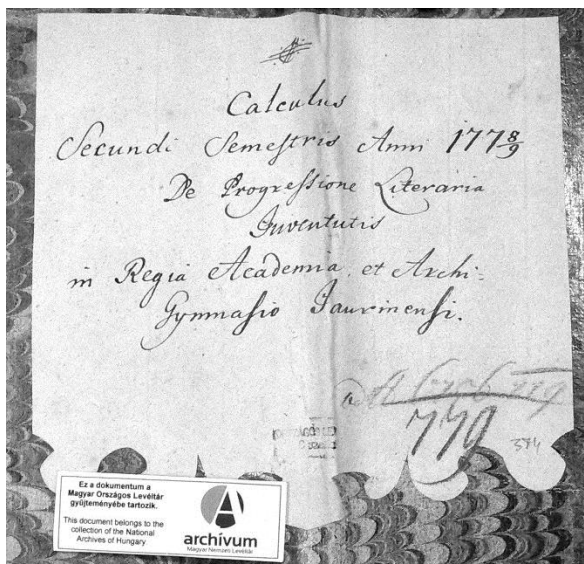 Calculus
Secundi Semestris Anni 177 8/9
De Progressione Literaria
Juventutis
in Regia Academia, et Archi-
Gymnasio Jaurinensi.
779
384
Ez a dokumentum a
Magyar Országos Levéltár
gyűjteményébe tartozik.
This document belongs to the
collection of the National
Archives of Hungary
archívum
Magyar Nemzeti Levéltár